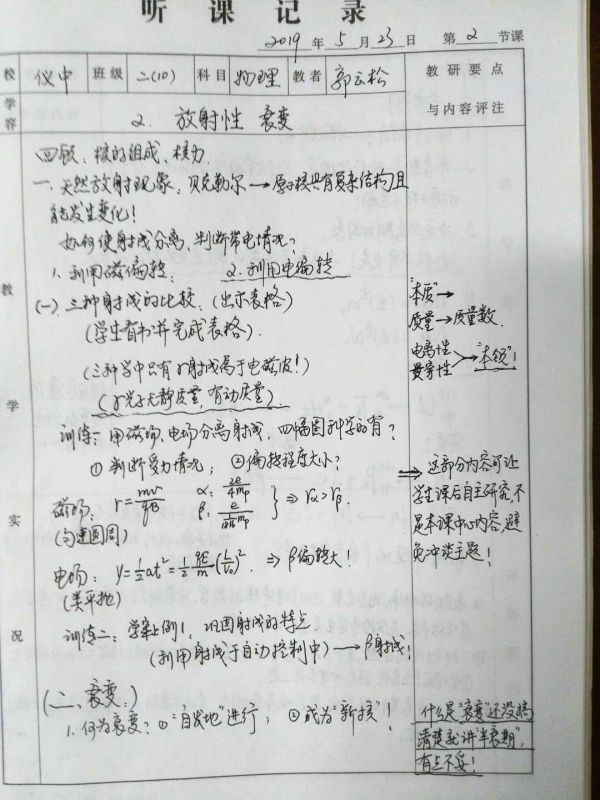 听课记录
2019年5月23日 第2节课
校 仪中 班级 二(10) 科目 物理 教者 郭云松 教研要点
与内容评注
学
容
2. 放射性 衰变
回顾：核的组成、核力.
一、天然放射现象：贝克勒尔→原子核具有复杂结构且
能发生变化！
如何使射线分离，判断带电情况？
1. 利用磁偏转. 2. 利用电偏转
(一) 三种射线的比较. (出示表格)
(学生看书并完成表格).
(三种当中只有γ射线属于电磁波！)
(γ光子无静质量，有动质量).
"本质"→
质量→质量数.
电离性
贯穿性 "本领"！
训练一：用磁场、电场分离射线，四幅图科学的有？
① 判断受力情况； ②偏转程度大小？
磁场： r=mv/qB α: 2e/4mp
β: e/ mp ⇒ rα>rβ.
(匀速圆周)
电场： y=½at²=½ qE/m (L/v₀)². ⇒ β偏转大！
(类平抛)
⇒ 这部分内容可让
学生课后自主研究，不
是本课中心内容，避
免冲淡主题！
训练二：学案上例1，巩固射线的特点
(利用射线于自动控制中)→β射线！
(二、衰变.)
1. 何为衰变？①"自发地"进行； ②成为"新核"！
什么是"衰变"还没搞
清楚就讲"半衰期"，
有点不妥！
教
学
实
况